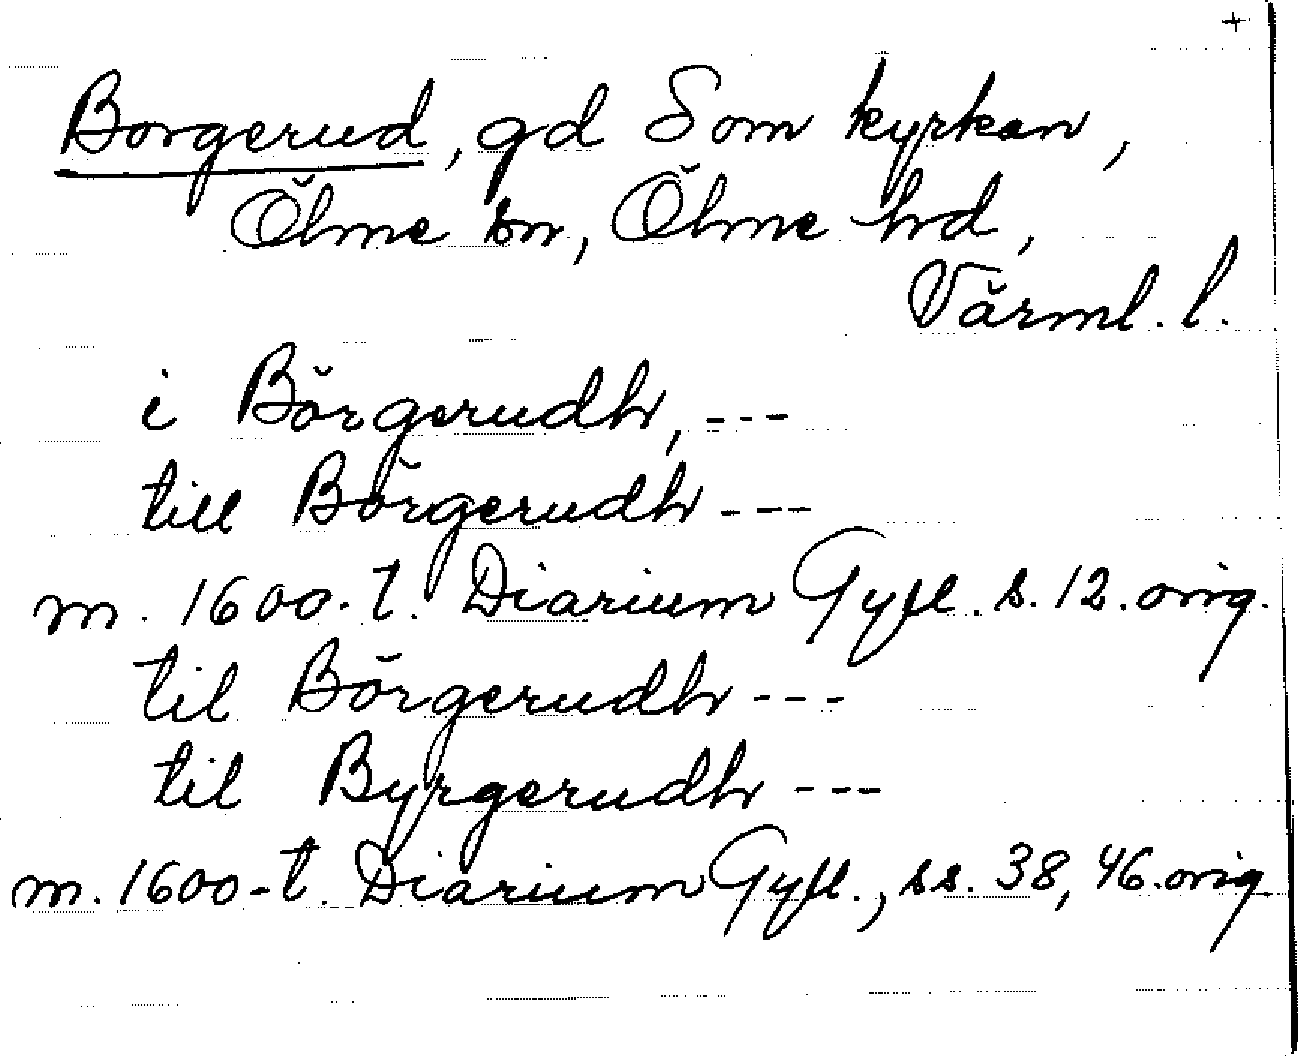 +
Borgerud, gd Som kyrkan,
Ölme sn, Ölme hrd,
Värml. l.
i Börgerudh, ---
till Börgerudh ---
m. 1600-t. Diarium Gyll. s. 12. orig.
til Börgerudh ---
til Byrgerudh ---
m. 1600-t. Diarium Gyll., ss. 38, 46. orig